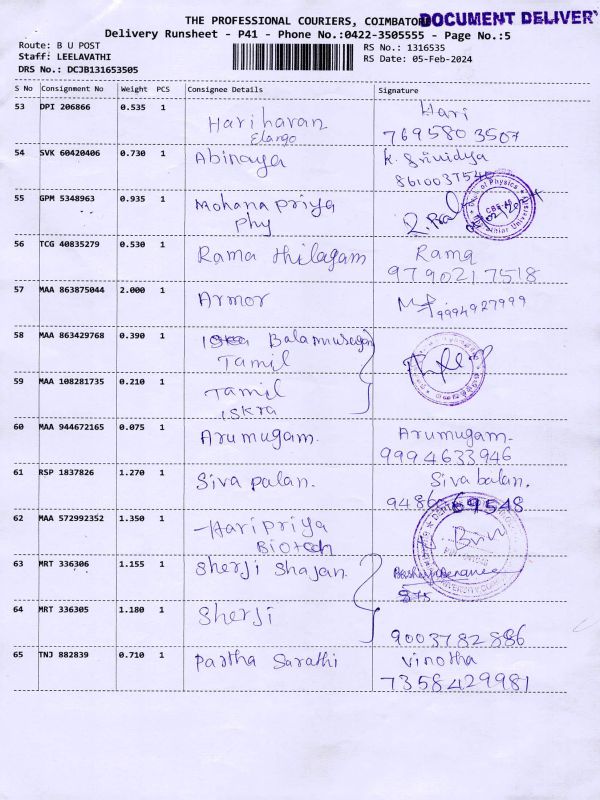 THE PROFESSIONAL COURIERS, COIMBATORE DOCUMENT DELIVERY
Delivery Runsheet - P41 - Phone No.:0422-3505555 - Page No.:5
Route: B U POST
Staff: LEELAVATHI
DRS No.: DCJB131653505
RS No.: 1316535
RS Date: 05-Feb-2024
S No Consignment No Weight PCS Consignee Details Signature
53 DPI 206866 0.535 1 Hariharan Hari
Elango 7695803507
54 SVK 60420406 0.730 1 Abinaya K. Srividya
55 GPM 5348963 0.935 1 Mohana Priya
Phy
56 TCG 40835279 0.530 1 Rama thilagam Rama
9790217518
57 MAA 863875044 2.000 1 Armor 9994927999
58 MAA 863429768 0.390 1 Balamurugan
Tamil
59 MAA 108281735 0.210 1 Tamil
iskra
60 MAA 944672165 0.075 1 Arumugam. Arumugam.
9994633946
61 RSP 1837826 1.270 1 Siva palan. Siva balan.
62 MAA 572992352 1.350 1 Haripriya
Biotech
63 MRT 336306 1.155 1 Sherji Shajan
64 MRT 336305 1.180 1 Sherji
9003782886
65 TNJ 882839 0.710 1 Partha Sarathi Vinotha
7358429981